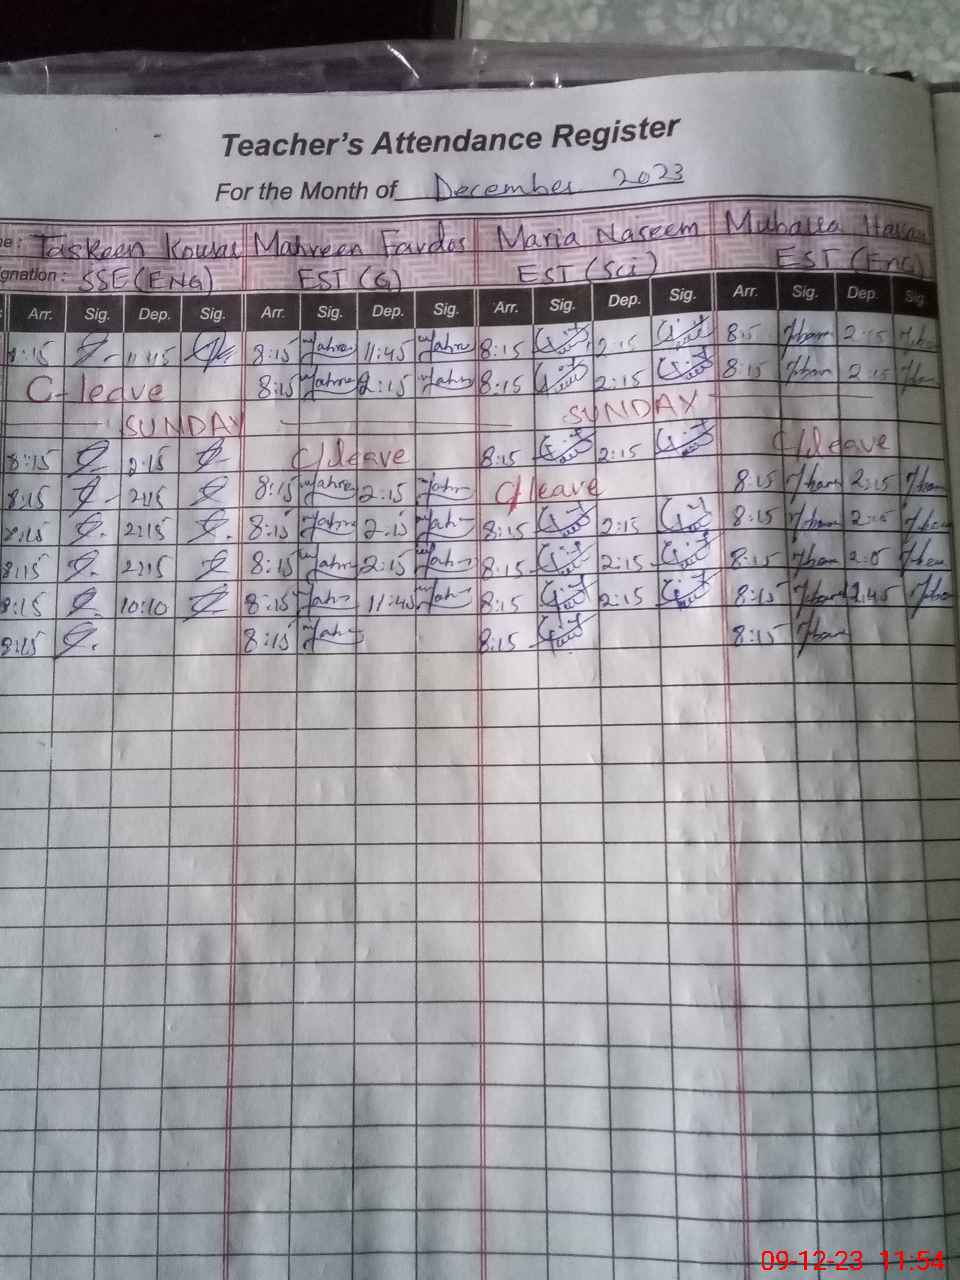 Teacher's Attendance Register
For the Month of December 2023
e: Taskeen Kowal Mahreen Fardos Maria Naseem Hassan
gnation: SSE (ENG) EST (G) EST (Sci) EST (Eng)
Arr. Sig. Dep. Sig. Arr. Sig. Dep. Sig. Arr. Sig. Dep. Sig. Arr. Sig. Dep. Sig.
8:15 11:45 8:15 Mahre 11:45 Mahre 8:15 2:15 8:15 2:15
C-leave 8:15 Mahre 2:15 Mahre 8:15 2:15 8:15 2:15
SUNDAY SUNDAY
8:15 2:15 C/leave 8:15 2:15 C/leave
8:15 2:15 8:15 Mahre 2:15 Mahr C/leave 8:15 2:15
8:15 2:15 8:15 Mahre 2:15 Mah 8:15 2:15 8:15 2:15
8:15 2:15 8:15 Mahre 2:15 Mah 8:15 2:15 8:15 2:15
8:15 10:10 8:15 Mah 11:45 Mah 8:15 2:15 8:15
8:15 8:15 Mah 8:15 8:15
09-12-23 11:54